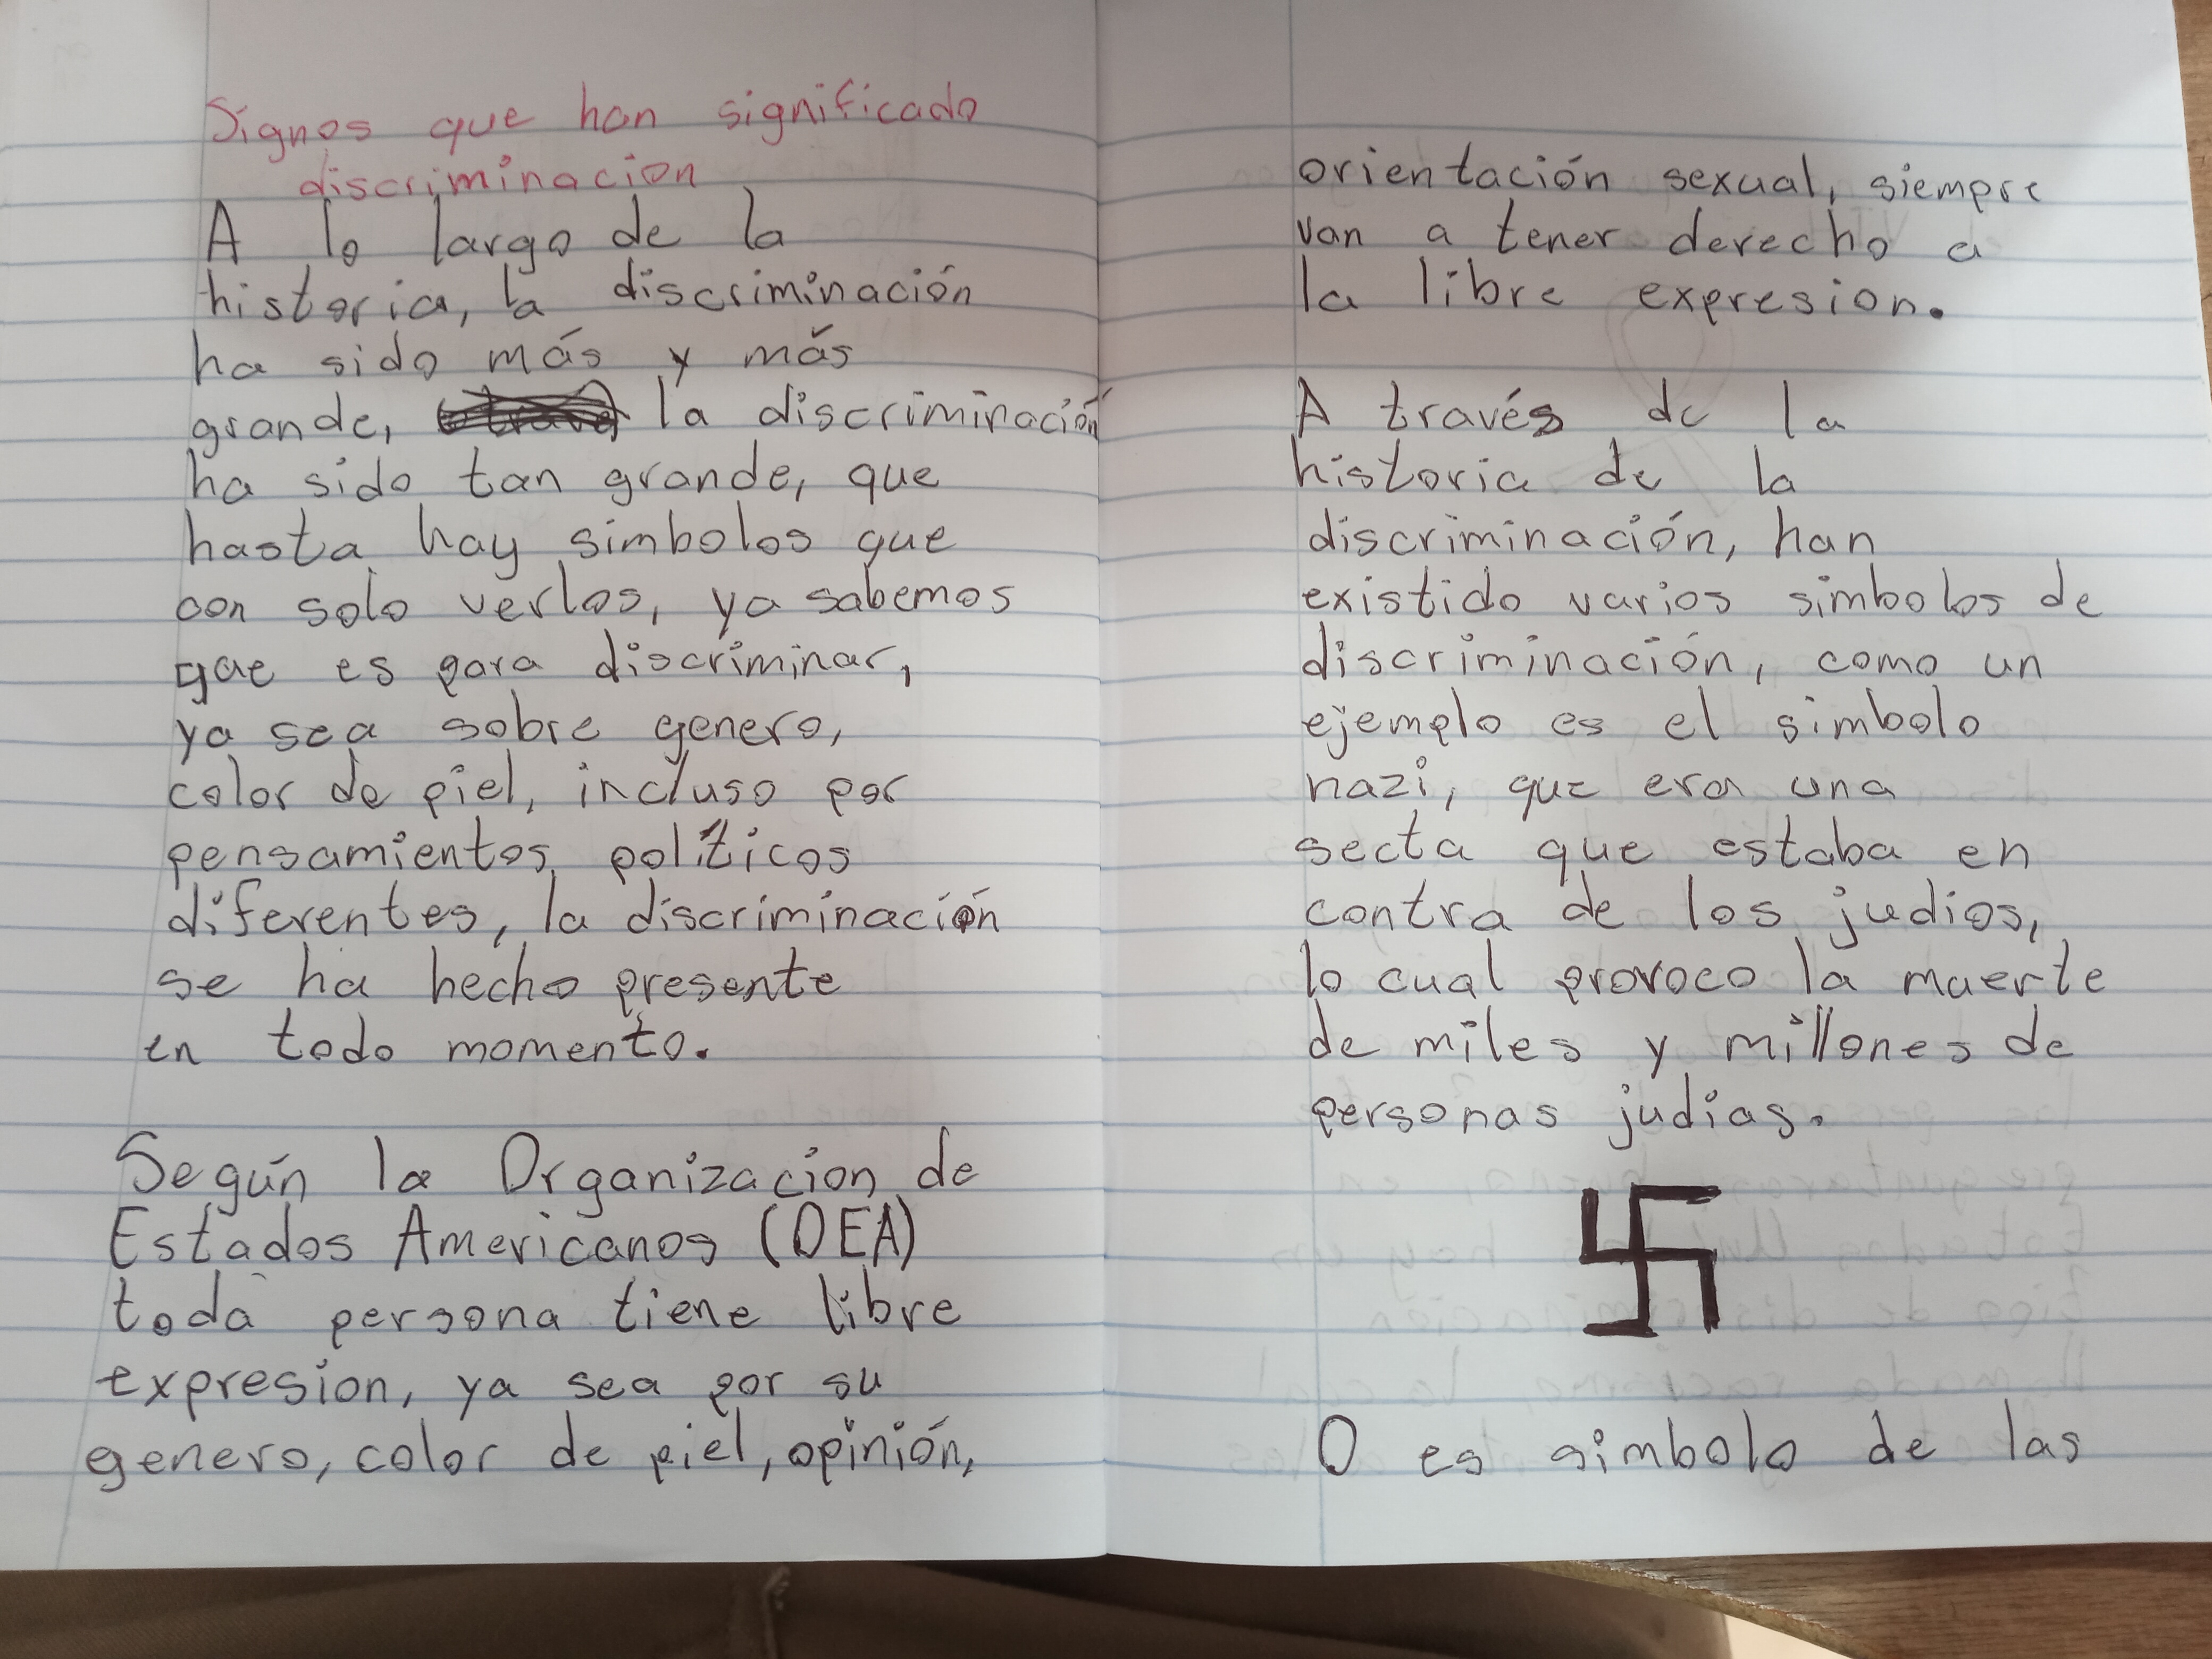 Signos que han significado
discriminacion
A lo largo de la
historia, la discriminación
ha sido más y más
grande, la discriminación
ha sido tan grande, que
hasta hay simbolos que
con solo verlos, ya sabemos
que es para discriminar,
ya sea sobre genero,
color de piel, incluso por
pensamientos políticos
diferentes, la discriminación
se ha hecho presente
en todo momento.
Según la Organizacion de
Estados Americanos (OEA)
toda persona tiene libre
expresion, ya sea por su
genero, color de piel, opinión,
orientación sexual, siempre
van a tener derecho a
la libre expresion.
A través de la
historia de la
discriminación, han
existido varios simbolos de
discriminación, como un
ejemplo es el simbolo
nazi, que era una
secta que estaba en
contra de los judios,
lo cual provoco la muerte
de miles y millones de
personas judias.
O es simbolo de las